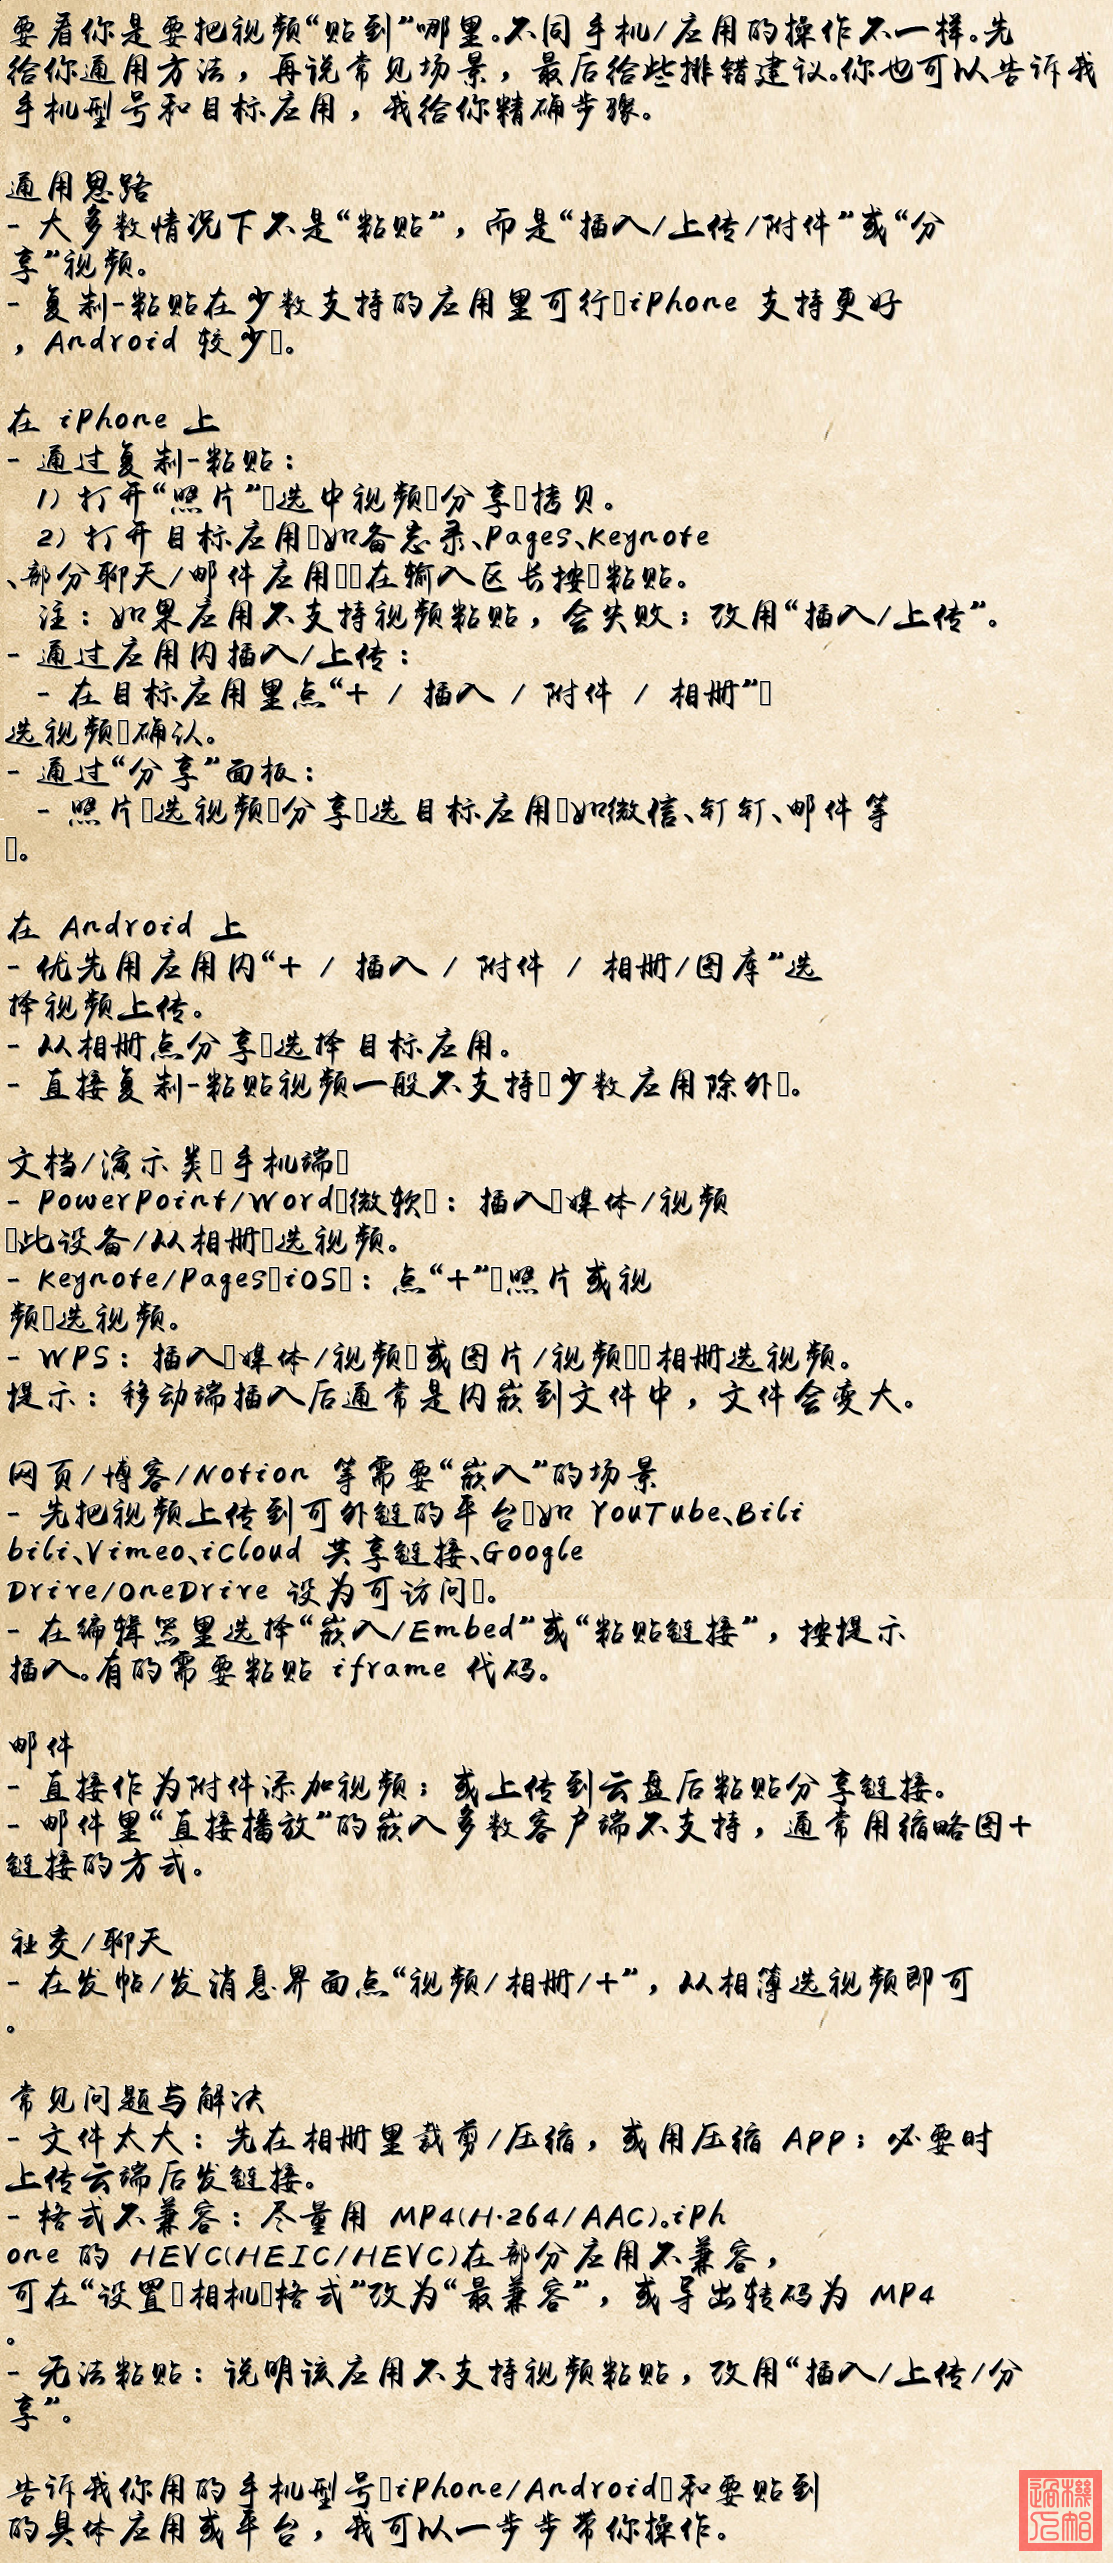 要看你是要把视频“贴到”哪里。不同手机/应用的操作不一样。先
给你通用方法，再说常见场景，最后给些排错建议。你也可以告诉我
手机型号和目标应用，我给你精确步骤。
通用思路
- 大多数情况下不是“粘贴”，而是“插入/上传/附件”或“分
享”视频。
- 复制-粘贴在少数支持的应用里可行▯iPhone 支持更好
，Android 较少▯。
在 iPhone 上
- 通过复制-粘贴：
1) 打开“照片”▯选中视频▯分享▯拷贝。
2) 打开目标应用▯如备忘录、Pages、Keynote
、部分聊天/邮件应用▯▯在输入区长按▯粘贴。
注：如果应用不支持视频粘贴，会失败；改用“插入/上传”。
- 通过应用内插入/上传：
- 在目标应用里点“+ / 插入 / 附件 / 相册”▯
选视频▯确认。
- 通过“分享”面板：
- 照片▯选视频▯分享▯选目标应用▯如微信、钉钉、邮件等
▯。
在 Android 上
- 优先用应用内“+ / 插入 / 附件 / 相册/图库”选
择视频上传。
- 从相册点分享▯选择目标应用。
- 直接复制-粘贴视频一般不支持▯少数应用除外▯。
文档/演示类▯手机端▯
- PowerPoint/Word▯微软▯：插入▯媒体/视频
▯此设备/从相册▯选视频。
- Keynote/Pages▯iOS▯：点“+”▯照片或视
频▯选视频。
- WPS：插入▯媒体/视频▯或图片/视频▯▯相册选视频。
提示：移动端插入后通常是内嵌到文件中，文件会变大。
网页/博客/Notion 等需要“嵌入”的场景
- 先把视频上传到可外链的平台▯如 YouTube、Bili
bili、Vimeo、iCloud 共享链接、Google
Drive/OneDrive 设为可访问▯。
- 在编辑器里选择“嵌入/Embed”或“粘贴链接”，按提示
插入。有的需要粘贴 iframe 代码。
邮件
- 直接作为附件添加视频；或上传到云盘后粘贴分享链接。
- 邮件里“直接播放”的嵌入多数客户端不支持，通常用缩略图+
链接的方式。
社交/聊天
- 在发帖/发消息界面点“视频/相册/+”，从相簿选视频即可
。
常见问题与解决
- 文件太大：先在相册里裁剪/压缩，或用压缩 App；必要时
上传云端后发链接。
- 格式不兼容：尽量用 MP4(H.264/AAC)。iPh
one 的 HEVC(HEIC/HEVC)在部分应用不兼容，
可在“设置▯相机▯格式”改为“最兼容”，或导出转码为 MP4
。
- 无法粘贴：说明该应用不支持视频粘贴，改用“插入/上传/分
享”。
告诉我你用的手机型号▯iPhone/Android▯和要贴到
的具体应用或平台，我可以一步步带你操作。